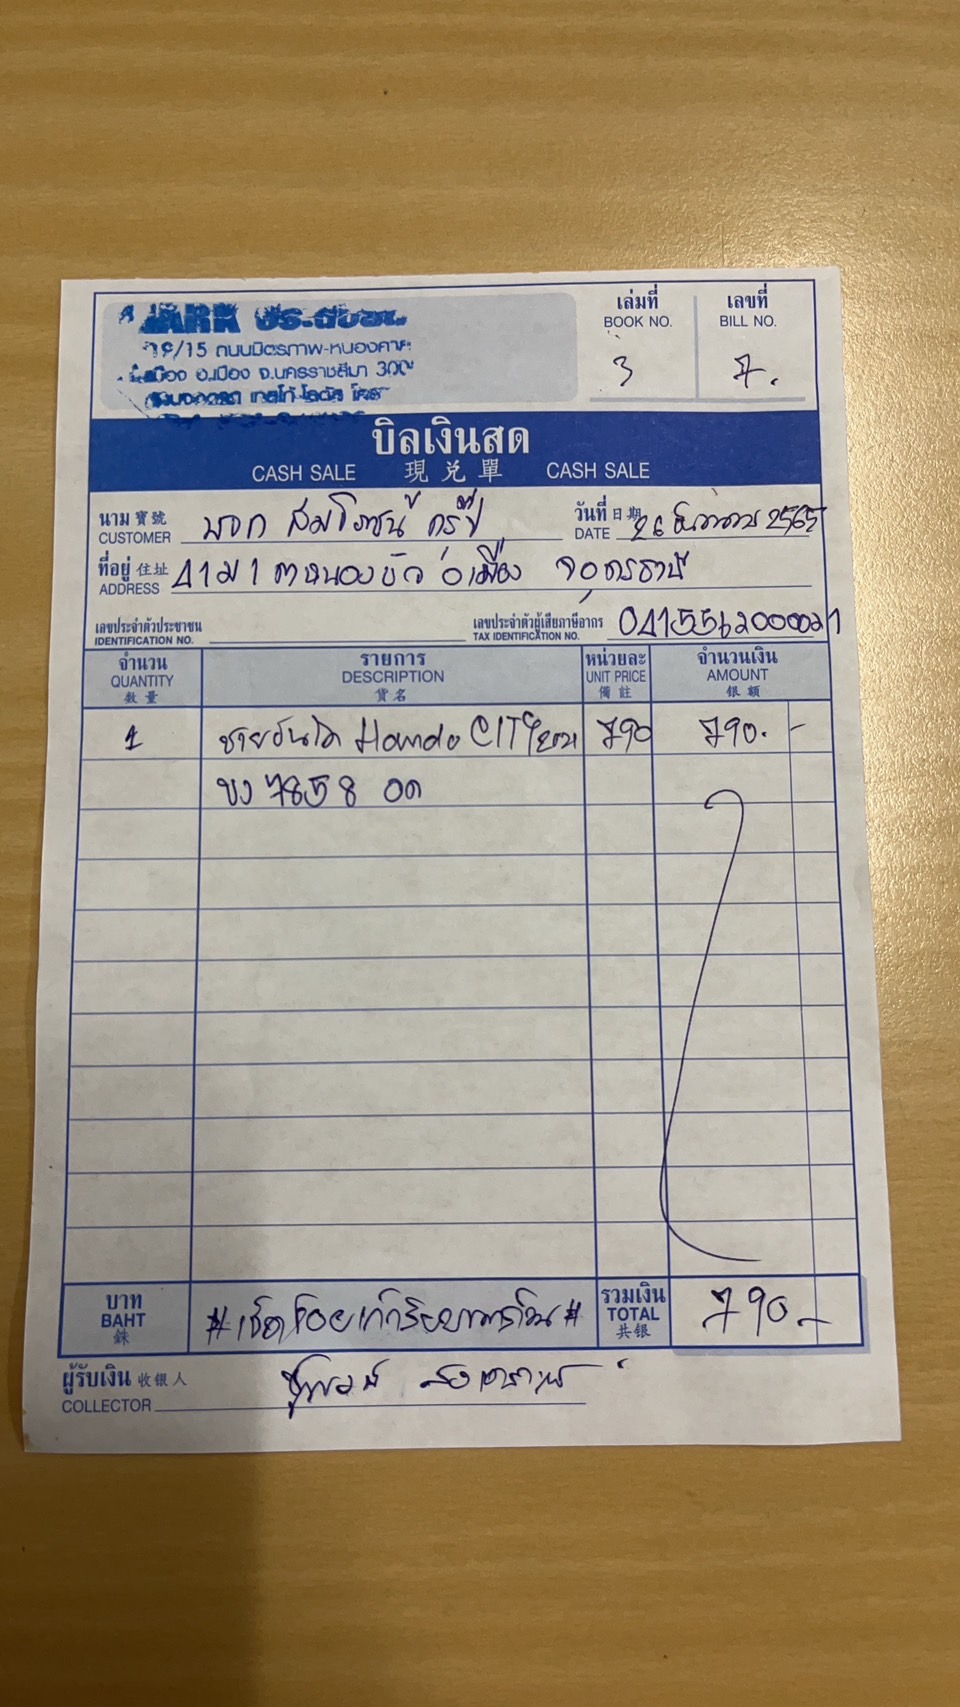 ARK ประดับยนต์
/15 ถนนมิตรภาพ-หนองคาย
อ.เมือง จ.นครราชสีมา 300
เทสโก้ โลตัส โคราช
เล่มที่ เลขที่
BOOK NO. BILL NO.
3 7.
บิลเงินสด
CASH SALE 現兌單 CASH SALE
นาม 寶號 บจก สมโภชน์ กรุ๊ป วันที่ 日期 26 ธันวาคม 2565
CUSTOMER DATE
ที่อยู่ 住址 41 ม 1 ต หนองบัว อ เมือง จ อุดรธานี
ADDRESS
เลขประจำตัวประชาชน เลขประจำตัวผู้เสียภาษีอากร 0415562000021
IDENTIFICATION NO. TAX IDENTIFICATION NO.
จำนวน รายการ หน่วยละ จำนวนเงิน
QUANTITY DESCRIPTION UNIT PRICE AMOUNT
數量 貨名 備註 銀額
1 ชายบันได Honda CITY 2021 790 790.-
ขง 7858 อด
บาท รวมเงิน
BAHT TOTAL 790.-
銖 共银
ผู้รับเงิน 收银人
COLLECTOR